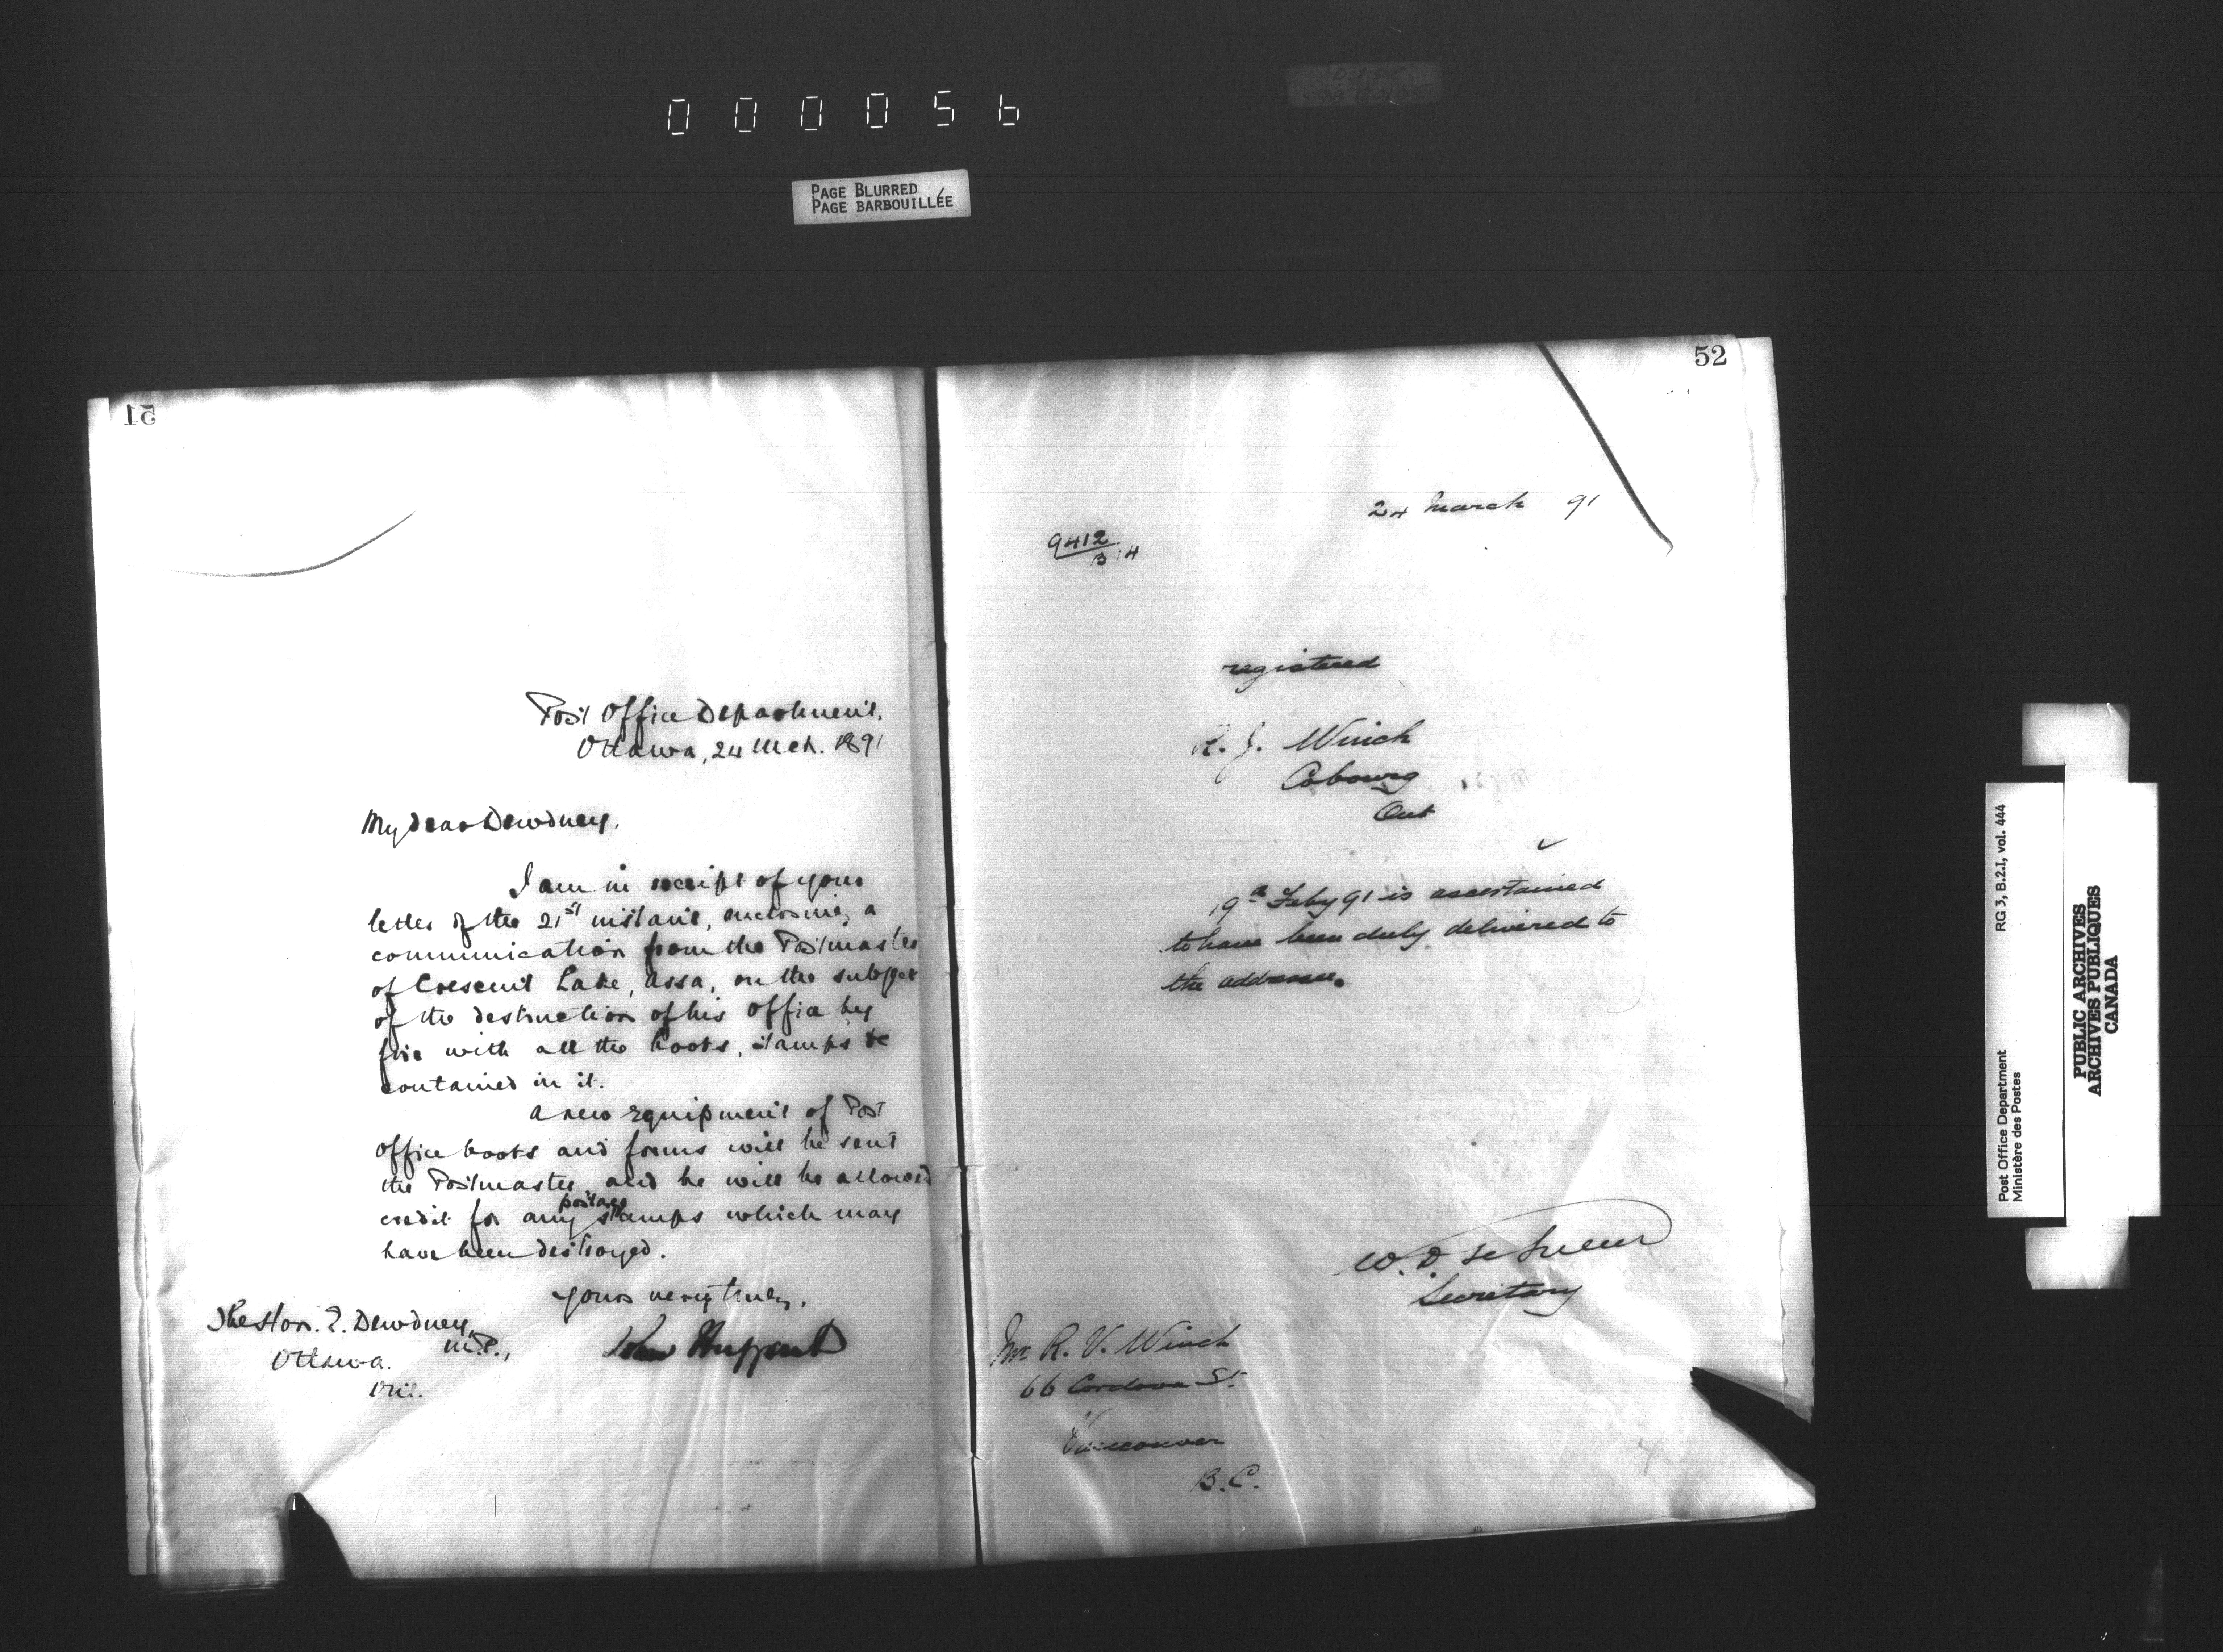 000056
PAGE BLURRED
PAGE BARBOUILLÉE
51
Post Office Department,
Ottawa, 24 Mch. 1891
My dear Dewdney,
I am in receipt of your
letter of the 21st instant, enclosing a
communication from the Postmaster
of Crescent Lake, Assa, on the subject
of the destruction of his office by
fire with all the books, stamps &c
contained in it.
A new equipment of Post
Office books and forms will be sent
the Postmaster and he will be allowed
credit for any postage stamps which may
have been destroyed.
Yours very truly,
John Haggart
The Hon. E. Dewdney,
M.P.,
Ottawa.
Ont.
52
24 March 91
9412
B 14
registered
R. J. Winch
Cobourg
Ont
19th Feby 91 is ascertained
to have been duly delivered to
the addressee.
W. D. Le Sueur
Secretary
Mr R. V. Winch
66 Cordova St
Vancouver
B.C.
RG 3, B.2.I, vol. 444
Post Office Department
Ministère des Postes
PUBLIC ARCHIVES
ARCHIVES PUBLIQUES
CANADA